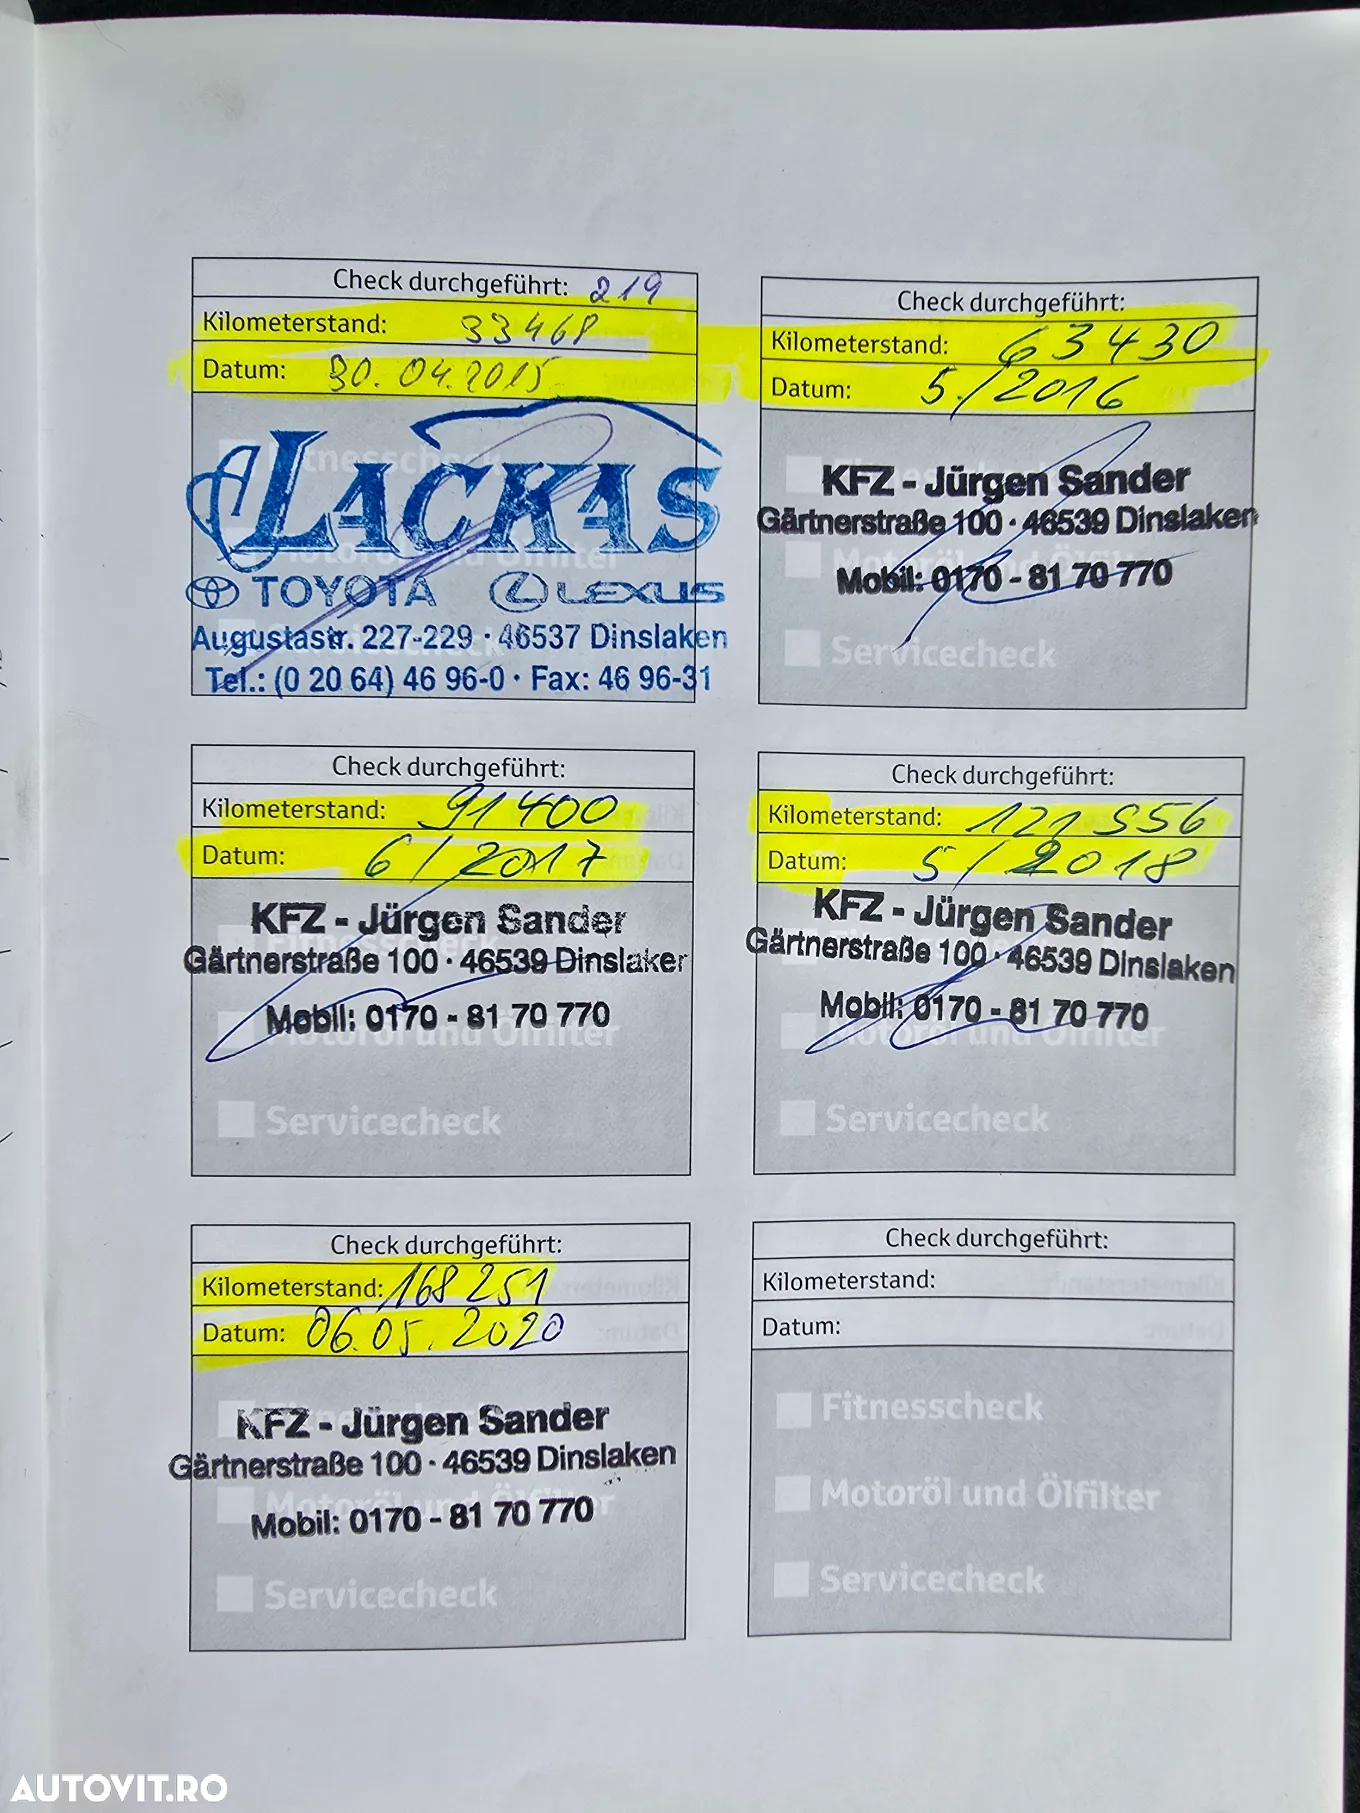 Check durchgeführt: 219
Kilometerstand: 33468
Datum: 30.04.2015
LACKAS
TOYOTA LEXUS
Augustastr. 227-229 · 46537 Dinslaken
Tel.: (0 20 64) 46 96-0 · Fax: 46 96-31
Check durchgeführt:
Kilometerstand: 63430
Datum: 5./2016
KFZ - Jürgen Sander
Gärtnerstraße 100 · 46539 Dinslaken
Mobil: 0170 - 81 70 770
Servicecheck
Check durchgeführt:
Kilometerstand: 91400
Datum: 6/2017
KFZ - Jürgen Sander
Gärtnerstraße 100 · 46539 Dinslaken
Mobil: 0170 - 81 70 770
Motoröl und Ölfilter
Servicecheck
Check durchgeführt:
Kilometerstand: 121556
Datum: 5/2018
KFZ - Jürgen Sander
Gärtnerstraße 100 · 46539 Dinslaken
Mobil: 0170 - 81 70 770
Motoröl und Ölfilter
Servicecheck
Check durchgeführt:
Kilometerstand: 168251
Datum: 06.05.2020
KFZ - Jürgen Sander
Gärtnerstraße 100 · 46539 Dinslaken
Motoröl und Ölfilter
Mobil: 0170 - 81 70 770
Servicecheck
Check durchgeführt:
Kilometerstand:
Datum:
Fitnesscheck
Motoröl und Ölfilter
Servicecheck
AUTOVIT.RO